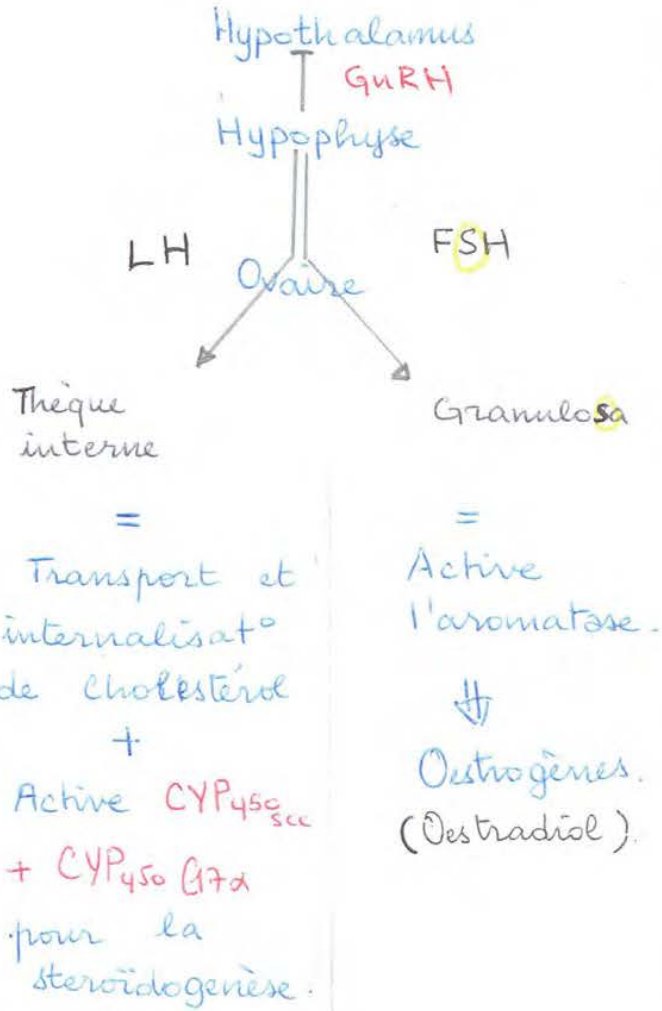 Hypothalamus
GnRH
Hypophyse
LH
FSH
Ovaire
Thèque
interne
=
Transport et
internalisat°
de cholestérol
+
Active CYP450scc
+ CYP450 C17α
pour la
steroïdogenèse.
Granulosa
=
Active
l'aromatase.
⇓
Oestrogènes.
(Oestradiol).